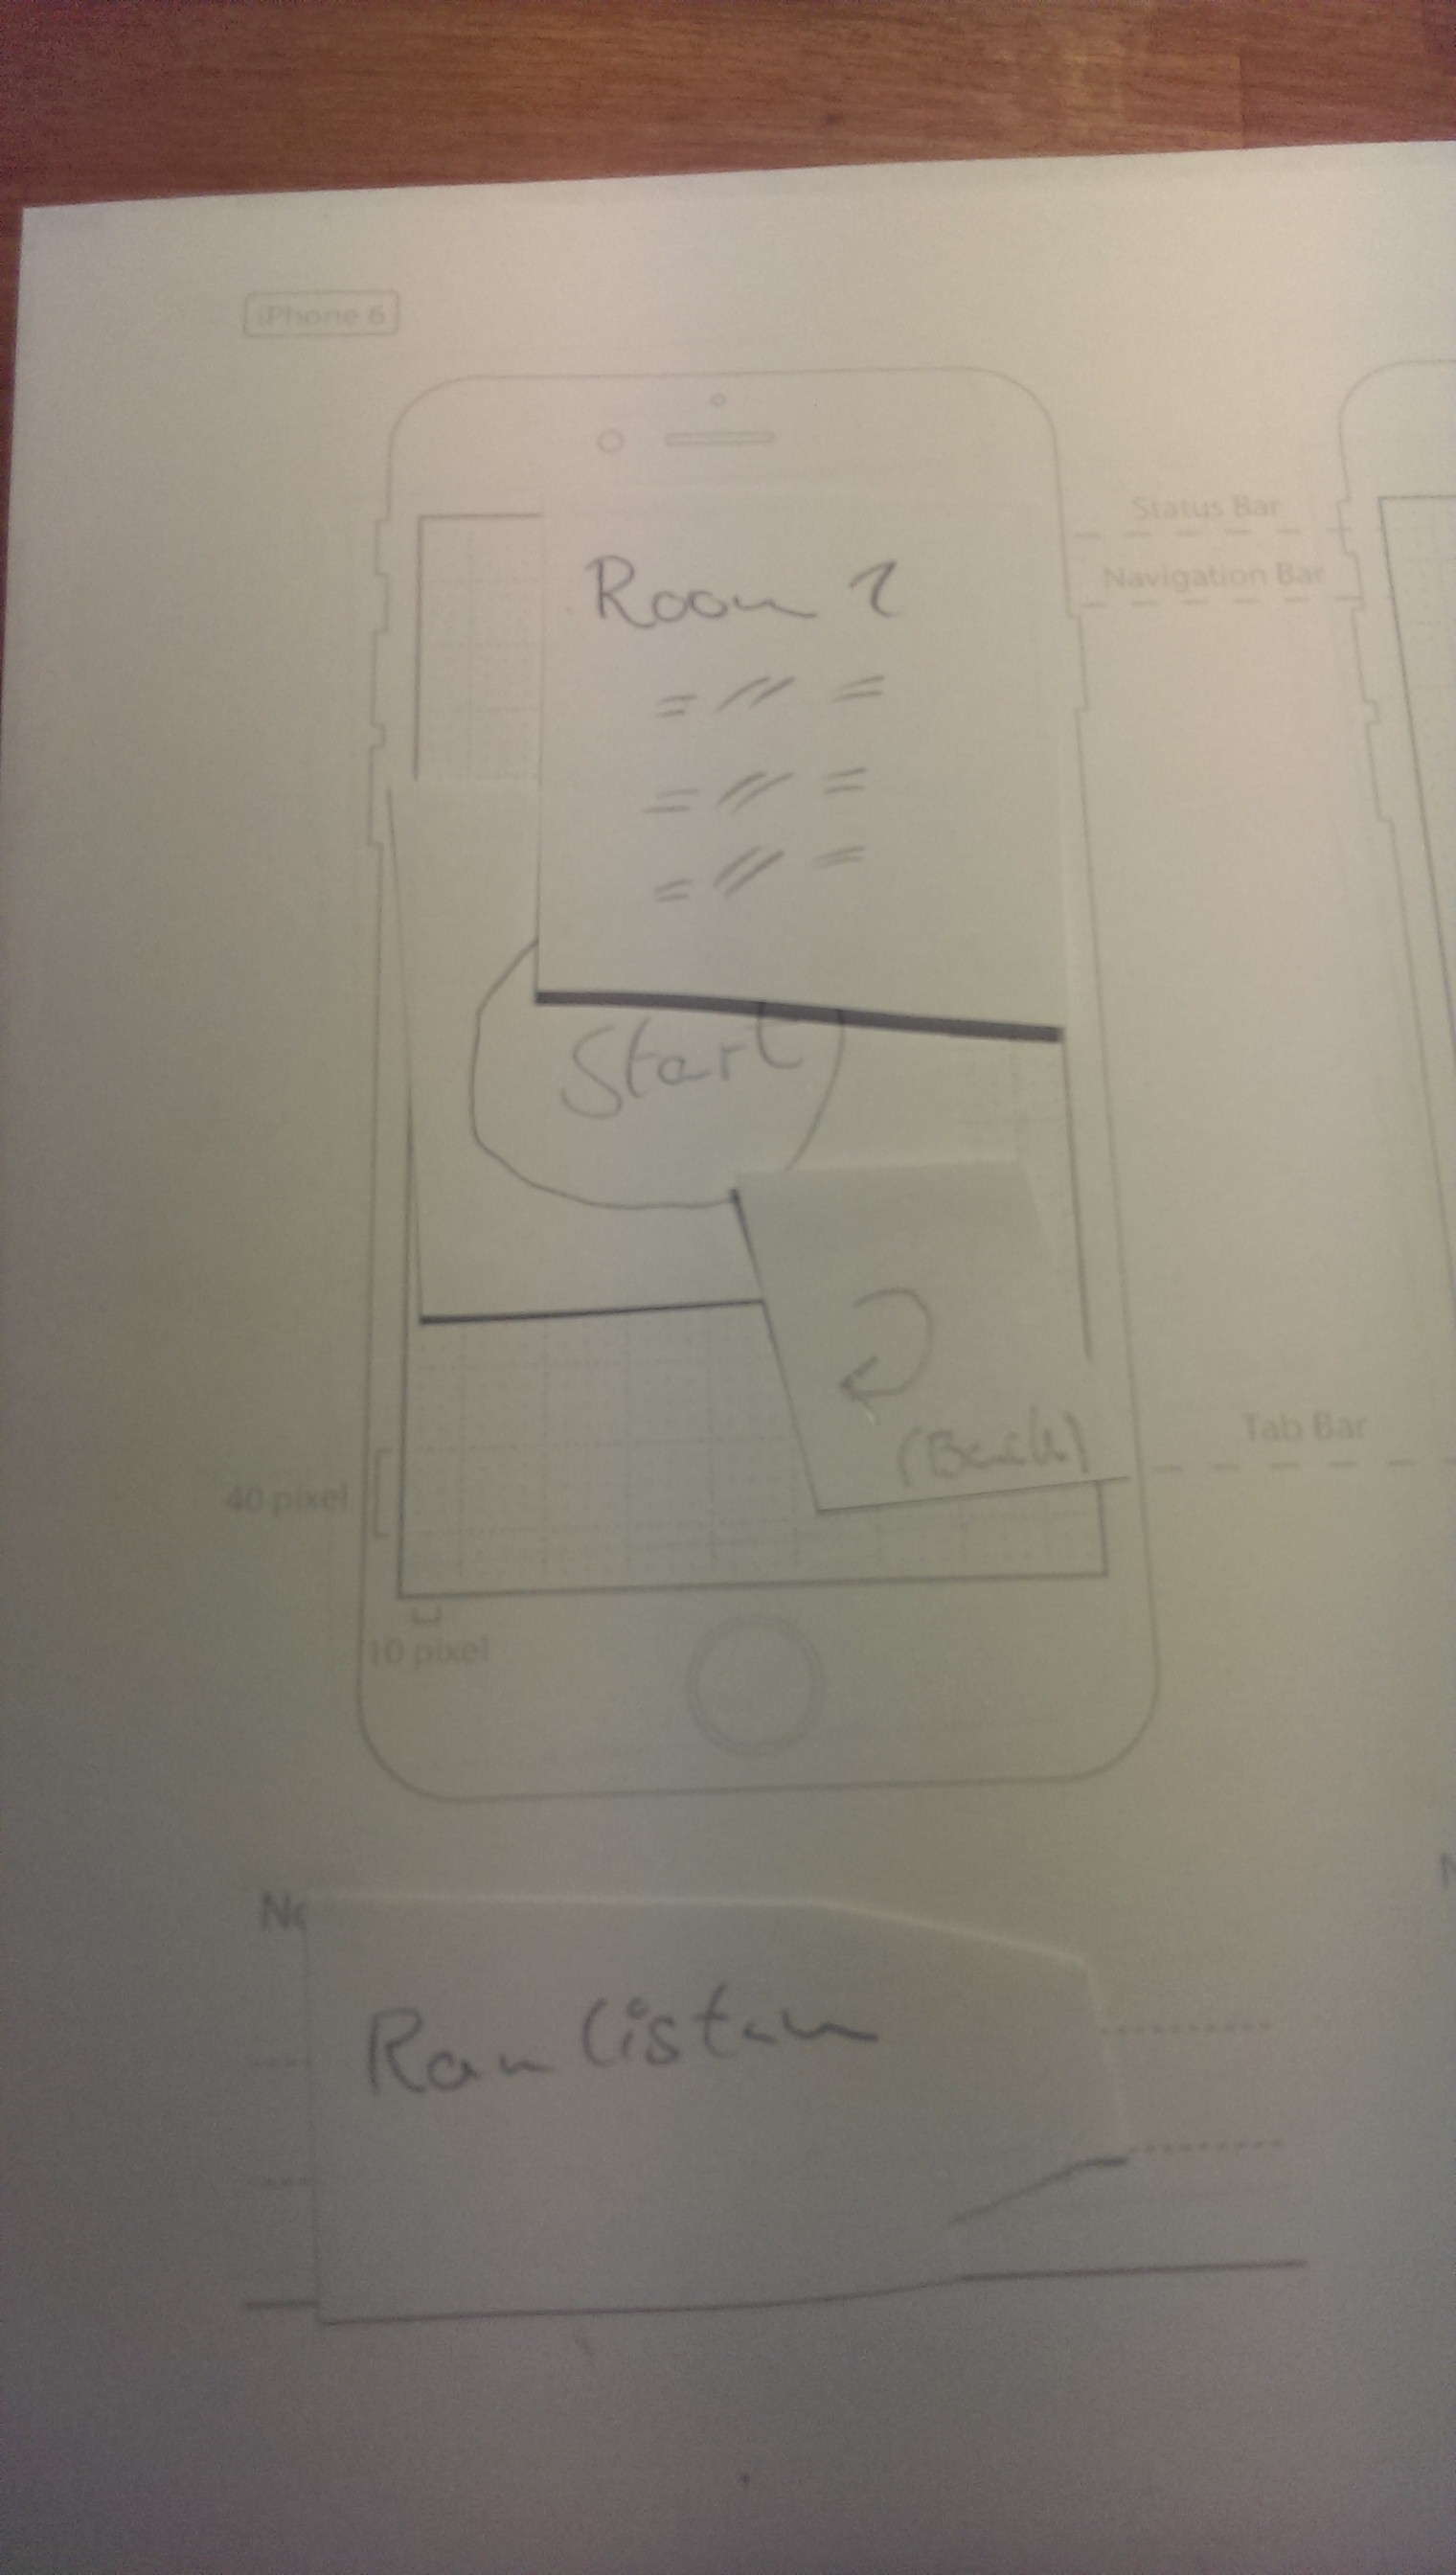 iPhone 6
Status Bar
Navigation Bar
Room 1
= // =
= // =
= // =
Start
(Back)
Tab Bar
40 pixel
10 pixel